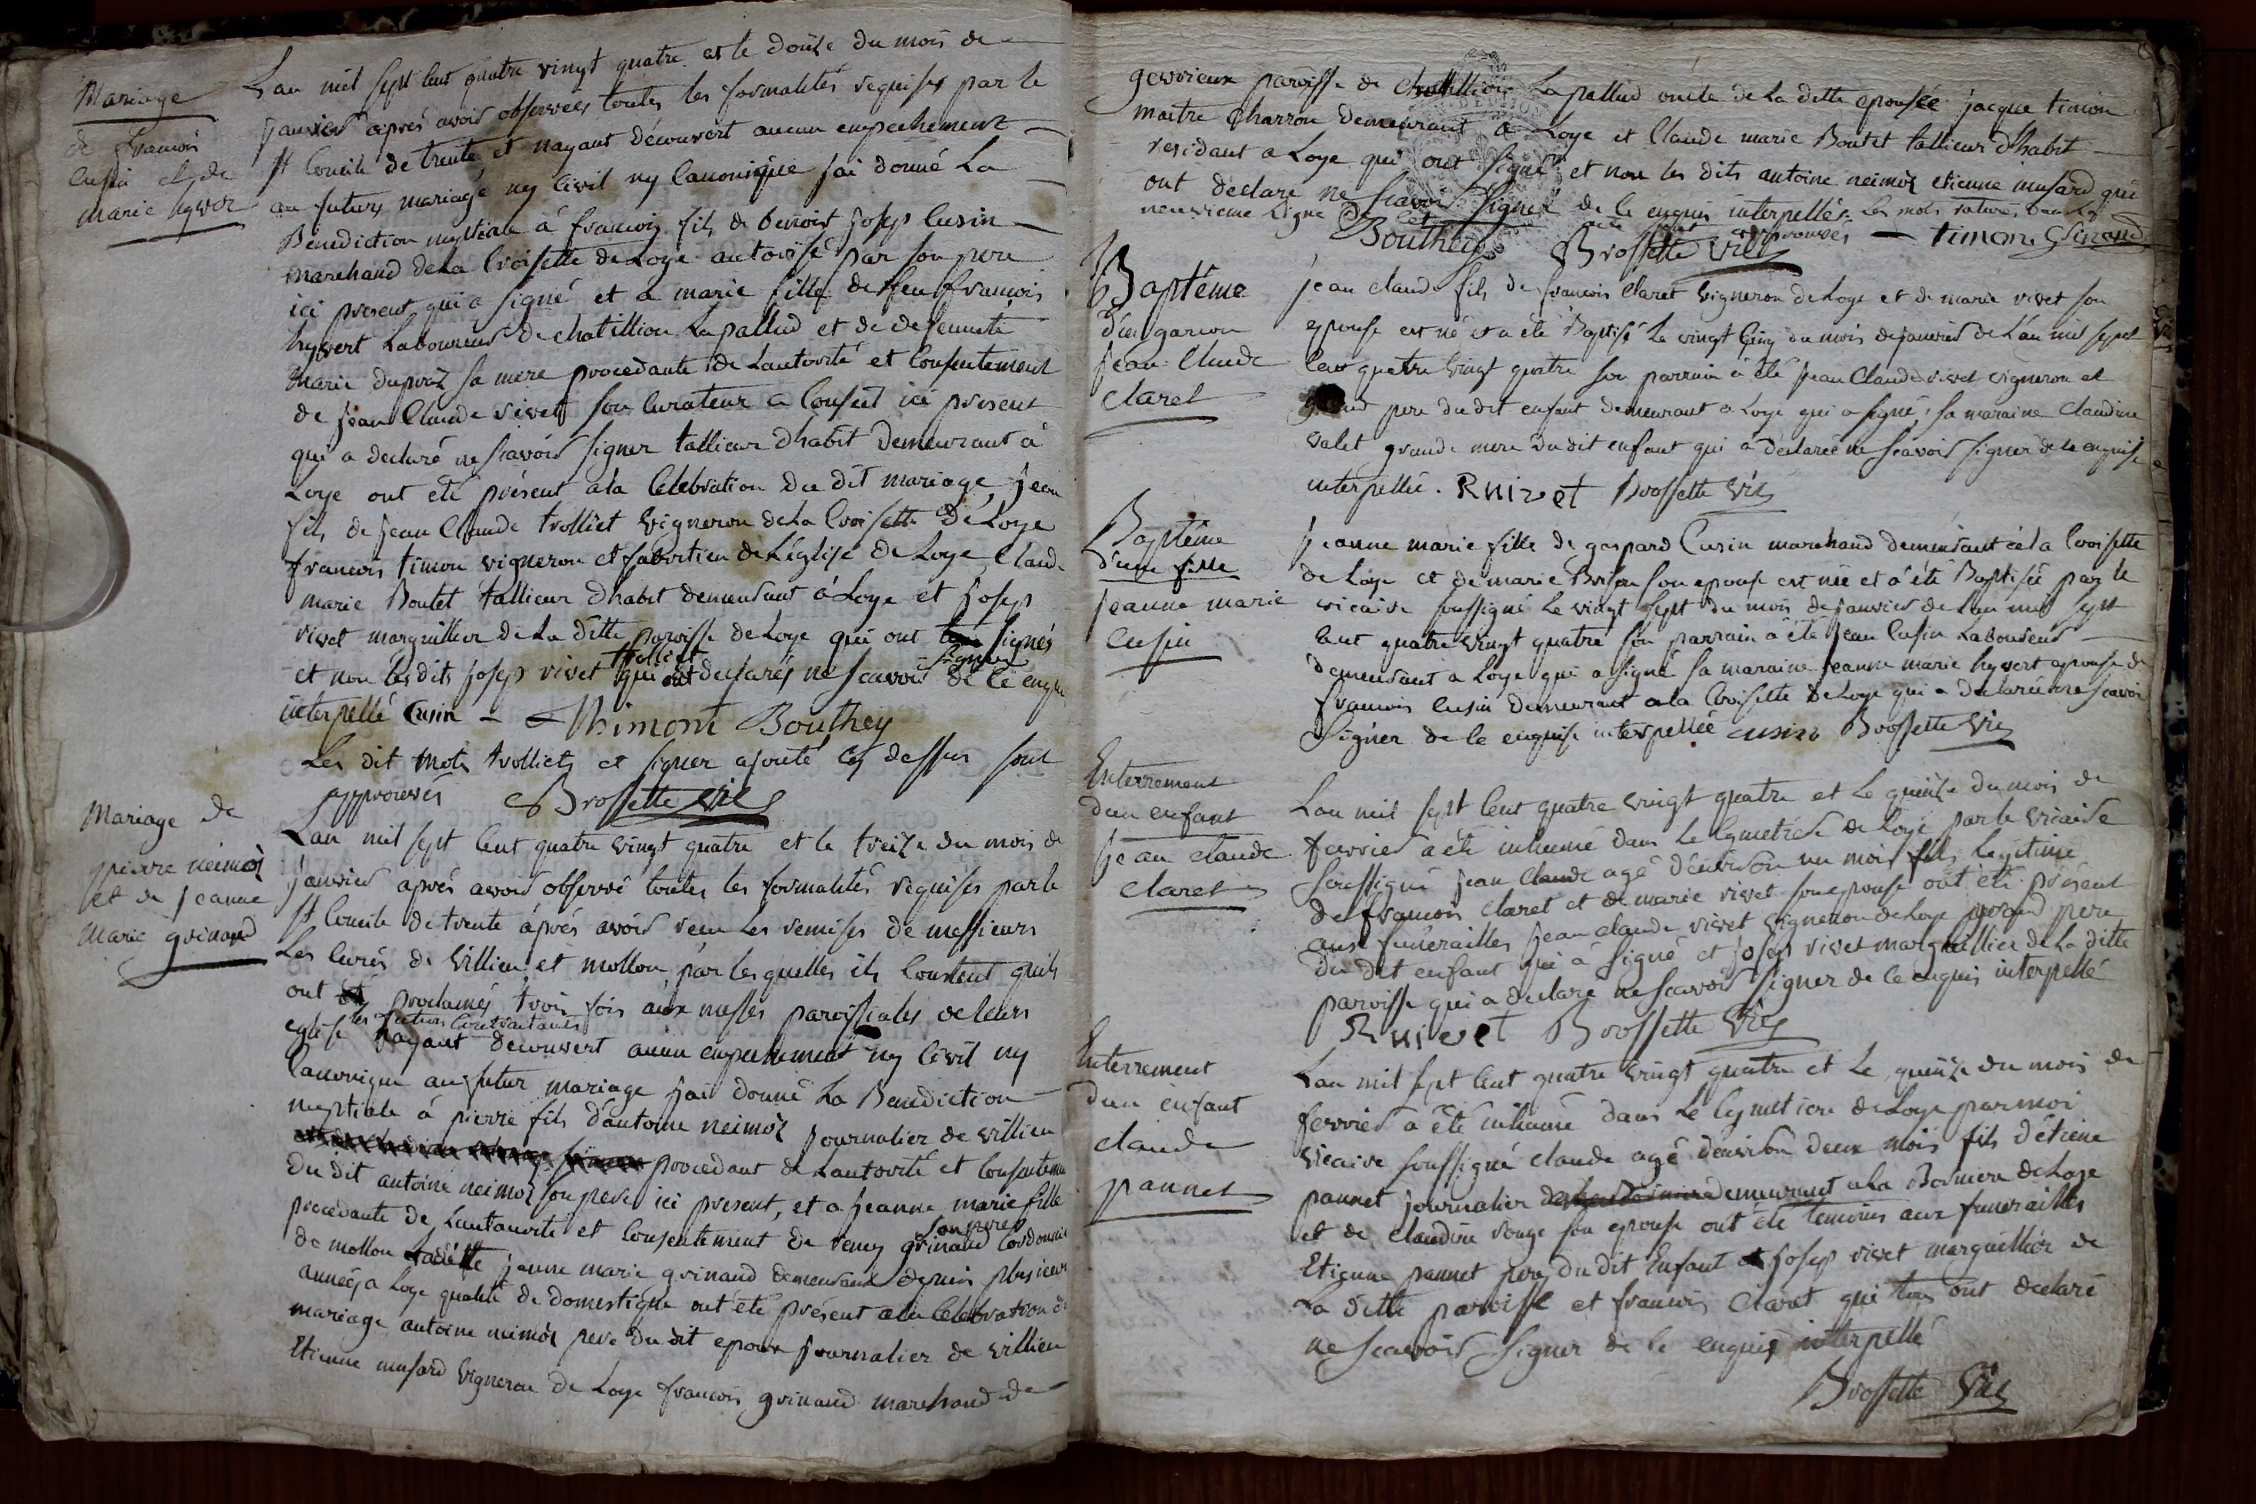 Mariage
de francois
Cusin et de
marie hyver
Lan mil sept cent quatre vingt quatre et le douze du mois de
janvier après avoir observées toutes les formalités requises par le
st Concile de trente et nayant découvert aucun empechement
au futurs mariage ny Civil ny Canonique jai donné La
Bénédiction nuptiale à francois fils de benoist josep Cusin
marchand de La Croisette de Loye autorisé par son pere
ici present qui a signé et a marie fille de feu francois
hyvert Laboureur de chatillion Lapallud et de defeunte
Marie dupraz sa mere procedante de Lautorité et Consentement
de jean Claude vivet son Curateur a Conseil ici present
qui a declaré ne scavoir signer tallieur dhabit demeurant à
Loye ont été présent a la Célébration du dit mariage, jean
fils de jean Claude trolliet vigneron de La Croisette de Loye
francois timon vigneron et sabortien de L'église de Loye, Claude
marie Boutet tallieur dhabit demeurant à Loye et josep
vivet marguillier de La ditte paroisse de Loye qui ont signés
trolliet signer
et non les dits josep vivet qui ont declarés ne scavoir de ce enquis
interpellé Cusin - Thimont Bouthey
Les dit mots trolliets et signer ajouté cy dessus sont
approuvés Brossette vic
Mariage de
pierre neimoz
et de jeanne
Marie grinand
Lan mil sept Cent quatre vingt quatre et le treize du mois de
janvier après avoir observé toutes les formalités requises par le
st Concile de trente après avoir veu Les remises de messieurs
Les Curés de Villieu et mollon par lesquelles ils Constent quils
ont proclamés trois fois aux messes paroissiales de leurs
les futurs Contractants
eglise nayant decouvert aucun empechement ny Civil ny
Canonique au futur mariage jai donné La Benediction
nuptiale à pierre fils d'antoine neimoz journalier de villieu
procedant de Lautorité et Consentement
du dit antoine neimoz son pere ici present, et a jeanne marie fille
son pere
procedante de Lautaurité et Consentement de remy grinand Cordonnier
de mollon jeanne marie grinand demeurant depuis plusieurs
années a Loye qualité de domestique ont été présent a la Celebration du
mariage antoine neimoz pere du dit epoux journalier de villieu
Etienne musard vigneron de Loye francois grinand marchand de
gevrieux paroisse de chatillion Lapallud oncle de La ditte epousée jacque timon
maitre Charron demeurant a Loye et Claude marie Boutet tallieur d'habit
residant a Loye qui ont signé et non les dits antoine neimoz etienne musard qui
ont declaré ne scavoir signer de ce enquis interpellés. Les mots raturés dans La
neuvieme Ligne approuvés
Bouthey Brossette vic timon Grinand
Baptême
d'un garcon
jean Claude
Claret
jean claude fils de francois Claret vigneron de Loye et de marie vivet son
epouse est né et a été Baptisé Le vingt Cinq du mois de janvier de L'an mil sept
Cent quatre vingt quatre son parrain a été jean Claude vivet vigneron et
grand pere du dit enfant demeurant a Loye qui a signé, sa maraine Claudine
valet grande mere du dit enfant qui a déclarée ne scavoir signer de ce enquise
interpellée. Ruivet Brossette vic
Baptême
d'une fille
jeanne marie
Cusin
jeanne marie fille de gaspard Cusin marchand demeurant a La Croisette
de Loye et de marie Brison son epouse est née et a été Baptisée par le
vicaire soussigné Le vingt sept du mois de janvier de Lan mil sept
Cent quatre vingt quatre son parrain a été jean Cusin Laboureur
demeurant a Loye qui a signé sa maraine jeanne marie hyvert epouse de
francois Cusin demeurant a la Croisette de Loye qui a declarée ne scavoir
signer de ce enquise interpellée cusin Brossette vic
Enterrement
d'un enfant
jean claude
Claret
Lan mil sept Cent quatre vingt quatre et Le quinze du mois de
fevrier a été inhumé dans Le Cymetiere de Loye par le vicaire
soussigné jean Claude agé d'environ un mois fils Legitime
de francois Claret et de marie vivet son epouse ont été présent
aux funérailles jean claude vivet vigneron de Loye grand pere
du dit enfant qui à signé et josep vivet marguillier de La ditte
paroisse qui a declaré ne scavoir signer de ce enquis interpellé
Ruivet Brossette vic
Enterrement
d'un enfant
claude
pannet
Lan mil sept Cent quatre vingt quatre et Le quinze du mois de
fevrier a été inhumé dans Le Cymetiere de Loye par moi
vicaire soussigné claude agé d'environ deux mois fils d'étiene
pannet journalier demeurant a La Barriere de Loye
et de Claudine rouge son epouse ont été temoins aux funerailles
Etienne pannet pere du dit Enfant josep vivet marguillier de
La ditte paroisse et francois Claret qui tous ont declaré
ne scavoir signer de ce enquis interpellé
Brossette vic